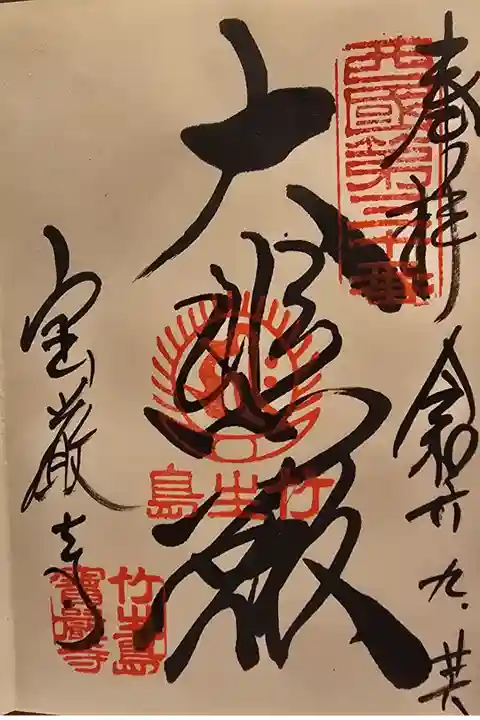 奉拝 令和六 九.
西國第三十番
大悲殿
竹生島
宝厳寺
竹生島
寶嚴寺